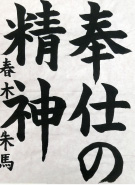 奉仕の
精神
春木朱馬